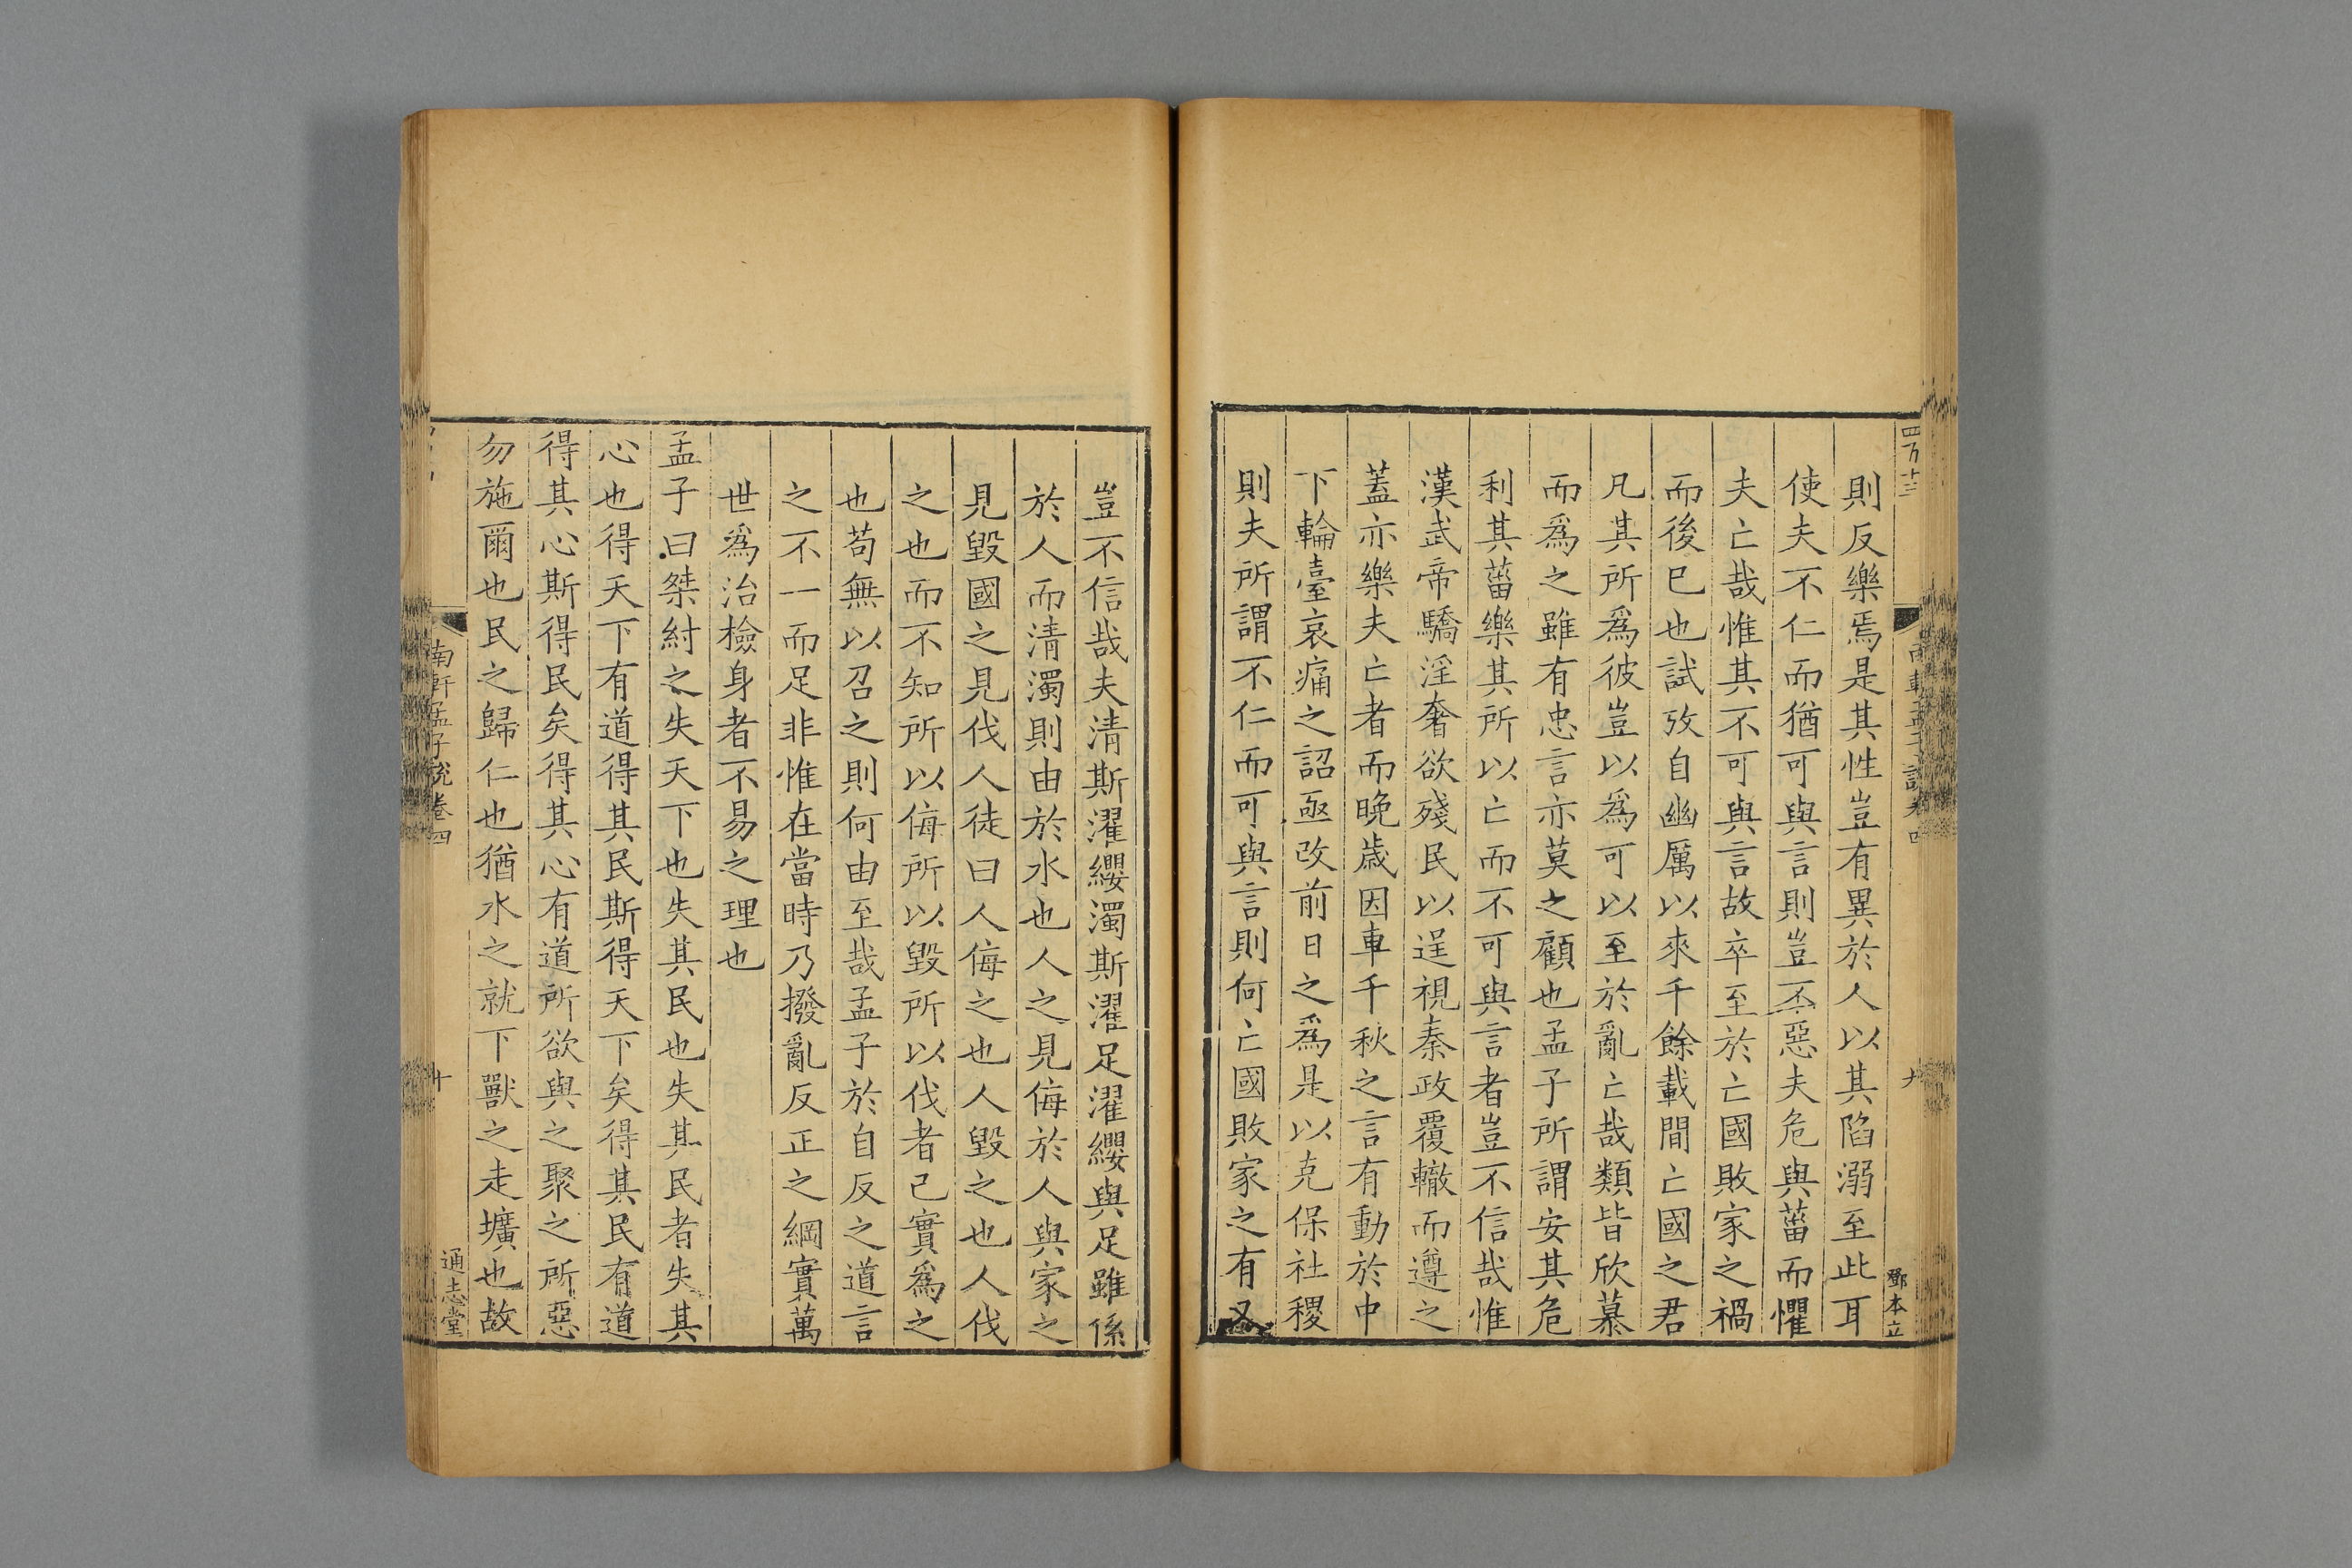 四百十三
南軒孟子說卷四
九
鄧本立
則反樂焉是其性豈有異於人以其陷溺至此耳
使夫不仁而猶可與言則豈不惡夫危與菑而懼
夫亡哉惟其不可與言故卒至於亡國敗家之禍
而後已也試攷自幽厲以來千餘載間亡國之君
凡其所爲彼豈以爲可以至於亂亡哉類皆欣慕
而爲之雖有忠言亦莫之顧也孟子所謂安其危
利其菑樂其所以亡而不可與言者豈不信哉惟
漢武帝驕淫奢欲殘民以逞視秦政覆轍而遵之
蓋亦樂夫亡者而晚歲因車千秋之言有動於中
下輪臺哀痛之詔亟改前日之爲是以克保社稷
則夫所謂不仁而可與言則何亡國敗家之有又
豈不信哉夫清斯濯纓濁斯濯足濯纓與足雖係
於人而清濁則由於水也人之見侮於人與家之
見毀國之見伐人徒曰人侮之也人毀之也人伐
之也而不知所以侮所以毀所以伐者己實爲之
也苟無以召之則何由至哉孟子於自反之道言
之不一而足非惟在當時乃撥亂反正之綱實萬
世爲治檢身者不易之理也
孟子曰桀紂之失天下也失其民也失其民者失其
心也得天下有道得其民斯得天下矣得其民有道
得其心斯得民矣得其心有道所欲與之聚之所惡
勿施爾也民之歸仁也猶水之就下獸之走壙也故
南軒孟子說卷四
十
通志堂